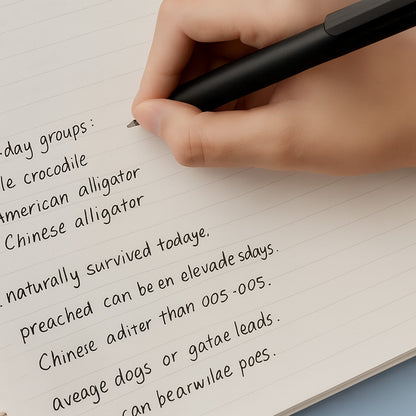 -day groups:
le crocodile
American alligator
Chinese alligator
naturally survived todaye.
preached can be en elevade sdays.
Chinese aditer than 005-005.
aveage dogs or gatae leads.
can bearwilae poes.